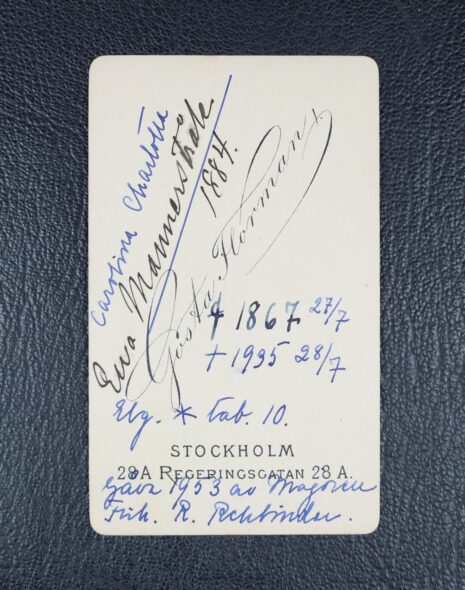 Carolina Charlotta
Ewa Mannerstråle
1884.
Gösta Florman
1867 27/7
† 1935 28/7
Elg. * tab. 10.
STOCKHOLM
28A REGERINGSGATAN 28 A.
Gåva 1953 av Majoren
Frih. R. Rehbinder.